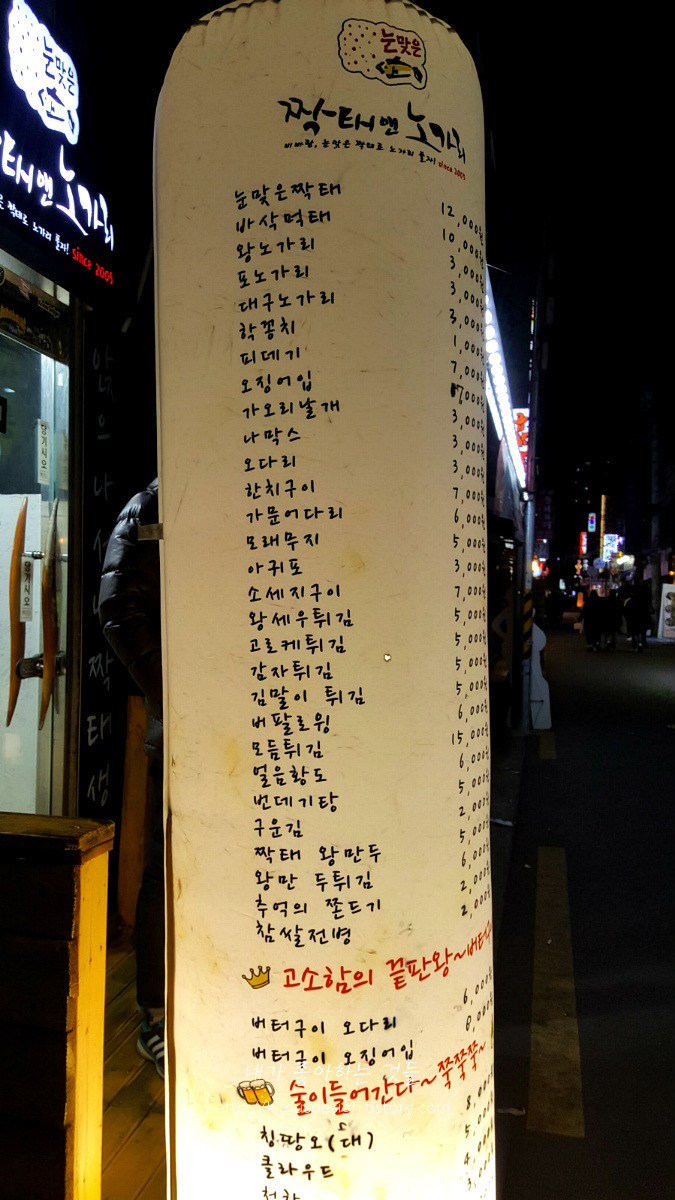 눈맞은
짝태앤노가리
비바람, 눈맞은 짝태로 노가리 풀자! since 2005
눈맞은짝태 12,000원
바삭먹태 10,000원
왕노가리 3,000원
포노가리 3,000원
대구노가리 3,000원
학꽁치 1,000원
피데기 7,000원
오징어입 7,000원
가오리날개 3,000원
나막스 3,000원
오다리 3,000원
한치구이 7,000원
가문어다리 6,000원
모래무지 5,000원
아귀포 3,000원
소세지구이 7,000원
왕세우튀김 5,000원
고로케튀김 5,000원
감자튀김 5,000원
김말이 튀김 5,000원
버팔로윙 6,000원
모듬튀김 15,000원
얼음황도 6,000원
번데기탕 5,000원
구운김 2,000원
짝태 왕만두 5,000원
왕만 두튀김 6,000원
추억의 쫀드기 2,000원
참쌀전병 2,000원
고소함의 끝판왕~버터
버터구이 오다리 6,000원
버터구이 오징어입 8,000원
내가 좋아하는 것들
술이들어간다~쭉쭉쭉~
칭땅오(대) 8,000
클라우드 5,000
눈맞은
태앤노가리
은 짝태로 노가리 풀자! since 2005
당기시오
당기시오
짝태